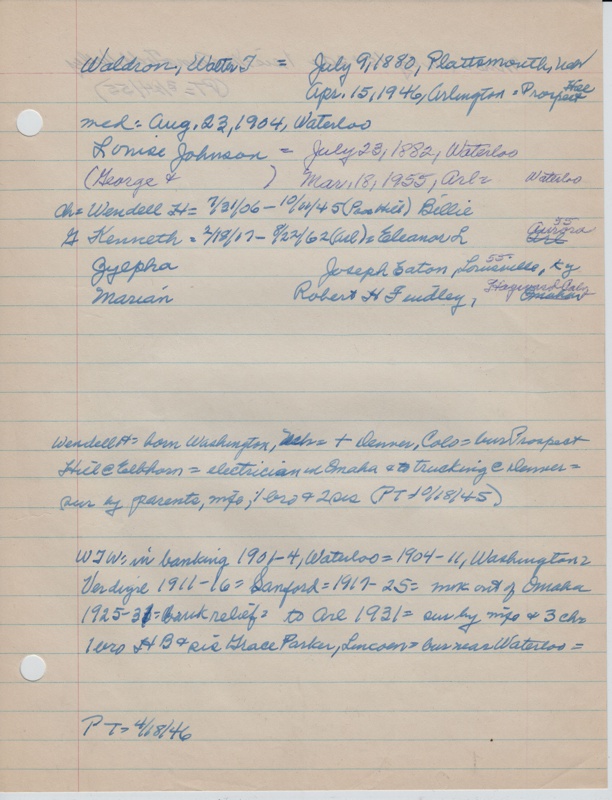 Waldron, Walter T = July 9, 1880, Plattsmouth, Neb
Apr. 15, 1946, Arlington = Prospect Hill
med: Aug. 23, 1904, Waterloo
Louise Johnson = July 23, 1882, Waterloo
(George & ) Mar. 18, 1955, Arl = Waterloo
ch = Wendell H = 7/31/06 - 10/11/45 (Pros Hill) Billie
G Kenneth = 2/18/17 - 8/22/62 (Arl) = Eleanor L 55 Aurora
Zylpha Joseph Eaton, 55 = Louisville, Ky
Marian Robert H Findley, Hayward
Wendell H = born Washington, + Denver, Colo = bur Prospect
Hill @ Elkhorn = electrician in Omaha & trucking @ Denver =
sur by parents, mfo, 1 bro & 2 sis (PT 10/18/45)
WTW: in banking 1901-4, Waterloo = 1904-11, Washington =
Verdigre 1911-16 = Sanford = 1917-25 = mok out of Omaha
1925-31 = bank relief = to Arl 1931 = sur by mfo & 3 ch =
1 bro H B & sis Grace Parker, Lincoln = bur near Waterloo =
PT = 4/18/46